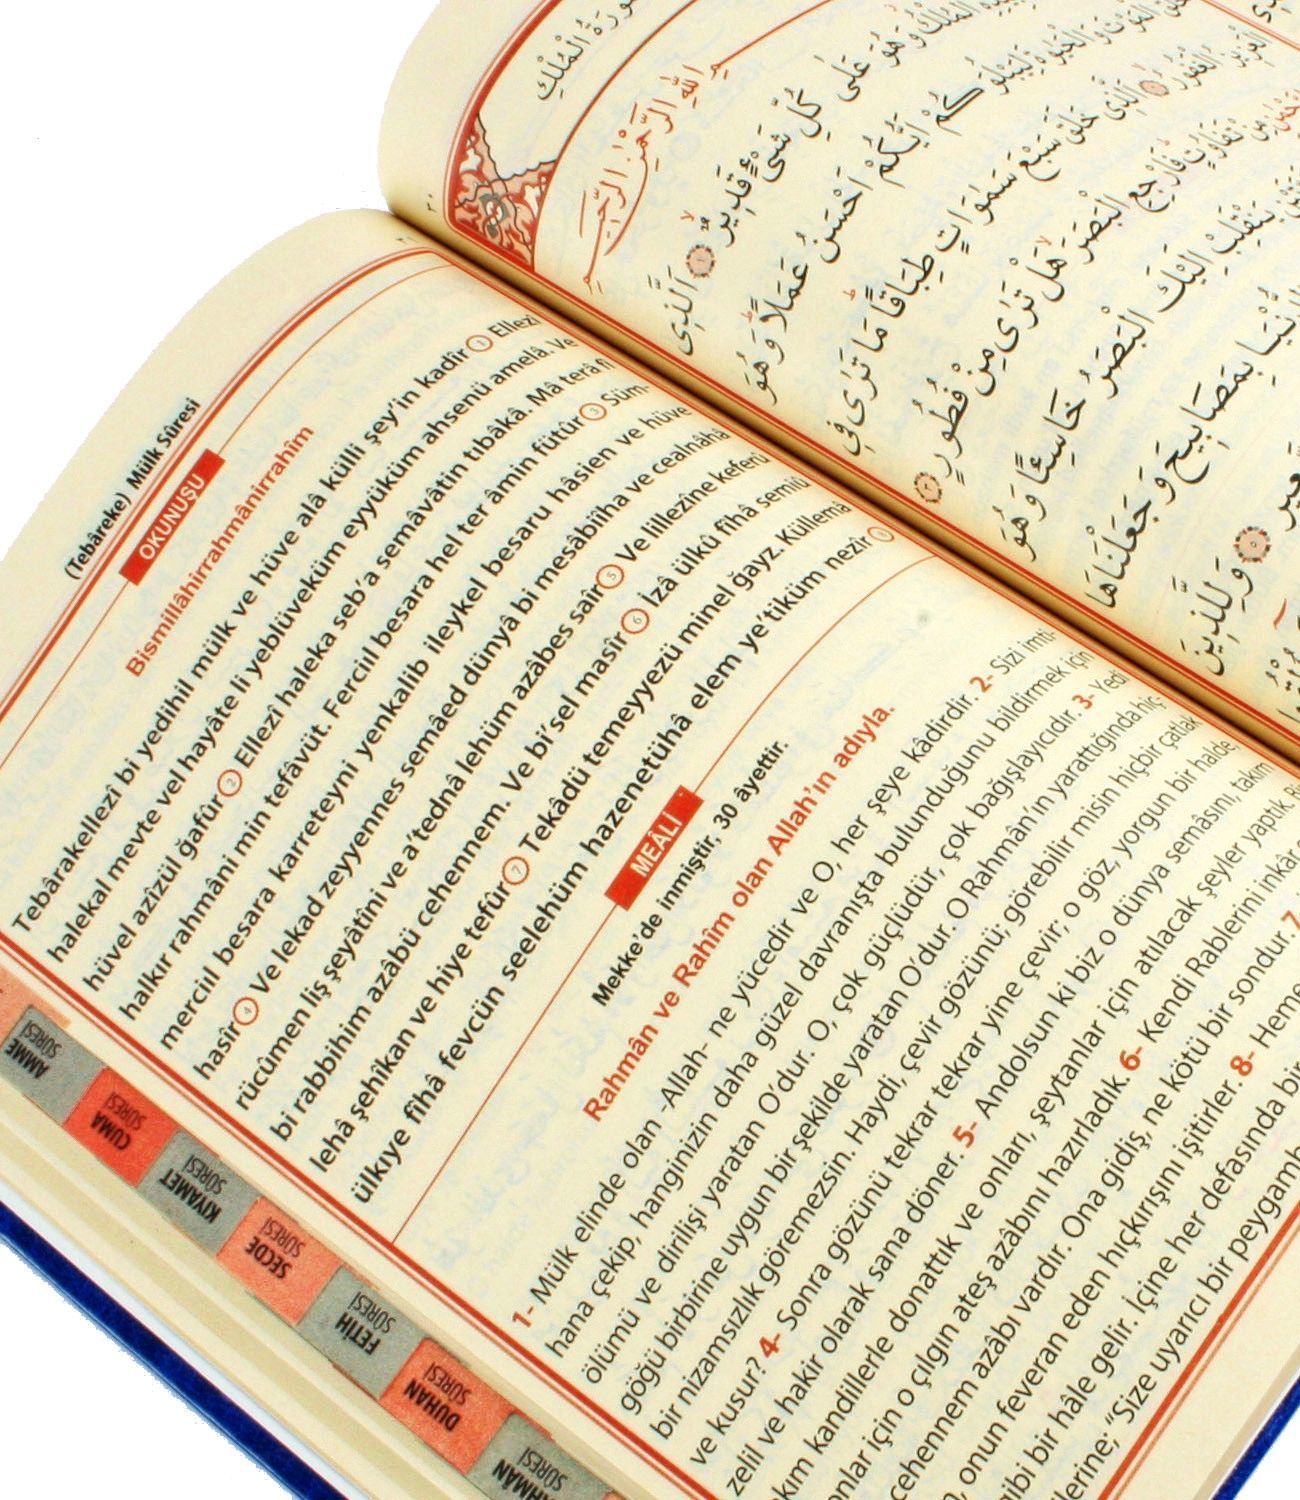 (Tebâreke) Mülk Sûresi
OKUNUŞU
Bismillâhirrahmânirrahîm
Tebârakellezî bi yedihil mülk ve hüve alâ külli şey'in kadîr 1 Ellezî
halekal mevte vel hayâte li yeblüveküm eyyüküm ahsenü amelâ. Ve
hüvel azîzül ğafûr 2 Ellezî haleka seb'a semâvâtin tıbâkâ. Mâ terâ fî
halkır rahmâni min tefâvüt. Ferciıl besara hel ter âmin fütür 3 Süm-
merciıl besara karreteyni yenkalib ileykel besaru hâsien ve hüve
hasîr 4 Ve lekad zeyyennes semâed dünyâ bi mesâbîiha ve cealnâhâ
rücûmen liş şeyâtîni ve a'tednâ lehüm azâbes saîr 5 Ve lillezîne keferû
bi rabbihim azâbü cehennem. Ve bi'sel masîr 6 İzâ ülkû fîhâ semiû
lehâ şehîkan ve hiye tefûr 7 Tekâdü temeyyezü minel ğayz. Küllemâ
ülkıye fîhâ fevcün seelehüm hazenetühâ elem ye'tiküm nezîr 8
MEÂLİ
Mekke'de inmiştir, 30 âyettir.
Rahmân ve Rahîm olan Allah'ın adıyla.
1- Mülk elinde olan -Allah- ne yücedir ve O, her şeye kâdirdir. 2- Sizi imti-
hana çekip, hanginizin daha güzel davranışta bulunduğunu bildirmek için
ölümü ve dirilişi yaratan O'dur. O, çok güçlüdür, çok bağışlayıcıdır. 3- Yedi
göğü birbirine uygun bir şekilde yaratan O'dur. O Rahmân'ın yarattığında hiç-
bir nizamsızlık göremezsin. Haydi, çevir gözünü; görebilir misin hiçbir çatlak
ve kusur? 4- Sonra gözünü tekrar tekrar yine çevir; o göz, yorgun bir halde,
zelil ve hakir olarak sana döner. 5- Andolsun ki biz o dünya semâsını, takım
kım kandillerle donattık ve onları, şeytanlar için atılacak şeyler yaptık.
onlar için o çılgın ateş azabını hazırladık. 6- Kendi Rablerini inkâr
cehennem azâbı vardır. Ona gidiş, ne kötü bir sondur. 7
onun feveran eden hıçkırışını işitirler. 8- Heme
gibi bir hâle gelir. İçine her defasında bir
lerine; "Size uyarıcı bir peygamb
AMME SÛRESİ
CUMA SÛRESİ
KIYAMET SÛRESİ
SECDE SÛRESİ
FETİH SÛRESİ
DUHAN SÛRESİ
HMÂN SÛRESİ
سُورَةُ الْمُلْكِ
اللّٰهِ الرَّحْمٰنِ الرَّحِيمِ
الْمُلْكُ وَهُوَ عَلٰى كُلِّ شَيْءٍ قَدِيرٌ ١ اَلَّذِى
الْمَوْتَ وَالْحَيٰوةَ لِيَبْلُوَكُمْ اَيُّكُمْ اَحْسَنُ عَمَلًا وَهُوَ
الْعَزِيزُ الْغَفُورُ ٢ اَلَّذِى خَلَقَ سَبْعَ سَمٰوَاتٍ طِبَاقًا مَا تَرٰى فِى
مِنْ تَفَاوُتٍ فَارْجِعِ الْبَصَرَ هَلْ تَرٰى مِنْ فُطُورٍ ٣
يَنْقَلِبْ اِلَيْكَ الْبَصَرُ خَاسِئًا وَهُوَ
الدُّنْيَا بِمَصَابِيحَ وَجَعَلْنَاهَا
السَّعِيرِ ٥ وَلِلَّذِينَ